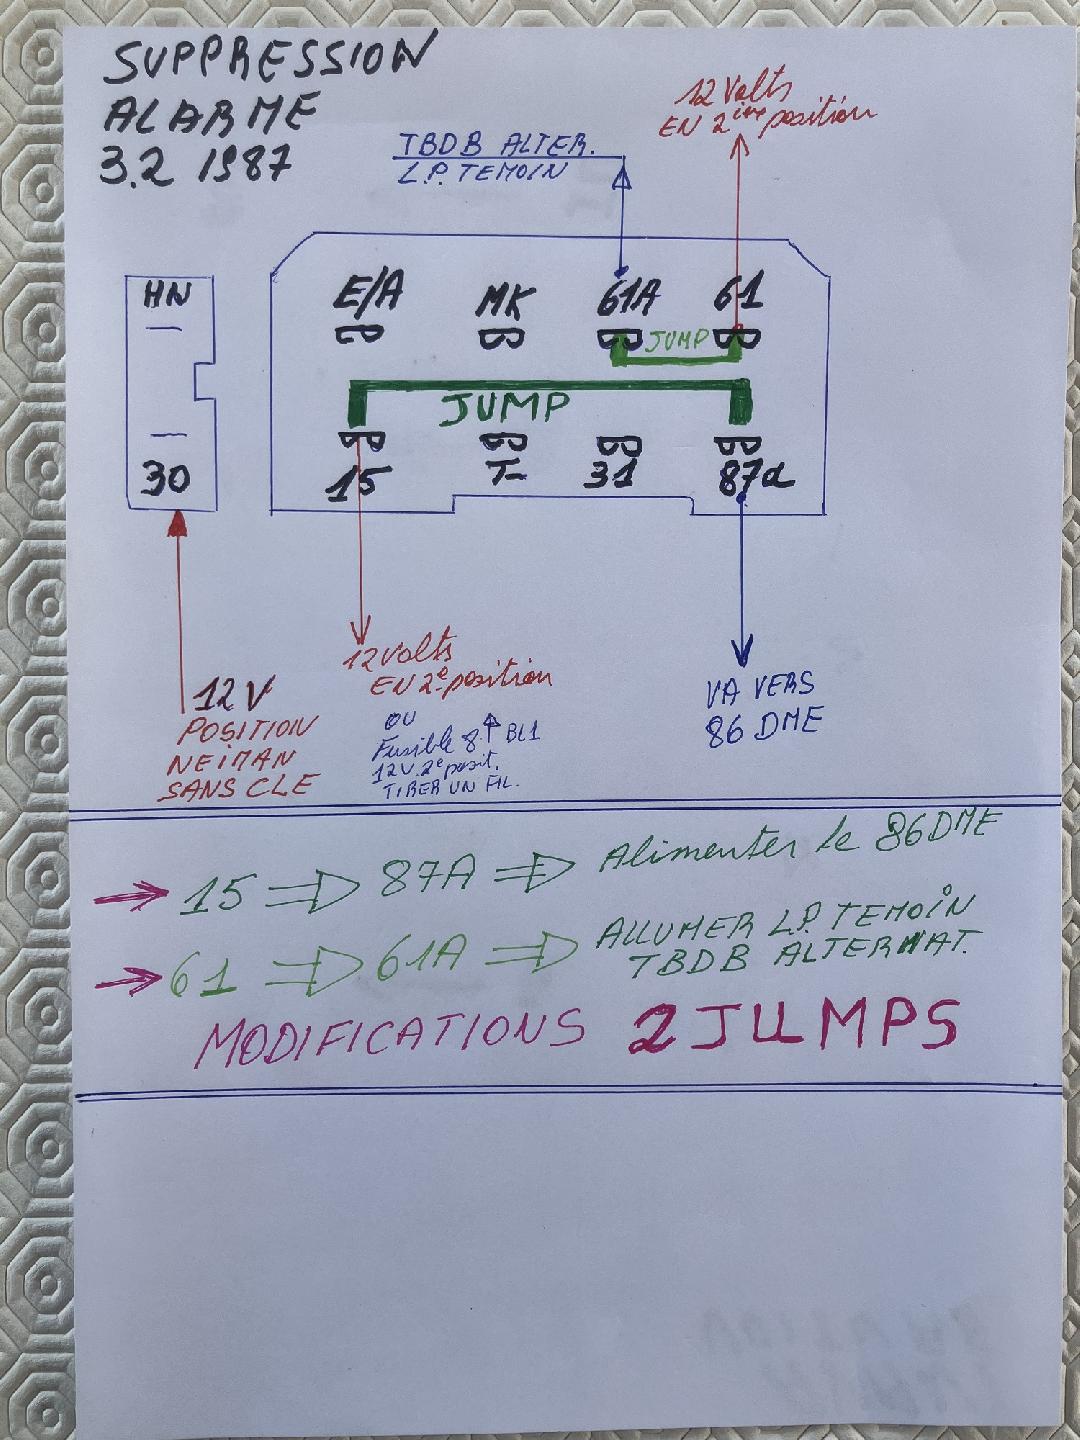 SUPPRESSION
ALARME
3.2 1987
TBDB ALTER.
L.P. TEMOIN
12 Volts
EN 2ième position
HN
E/A
MK
61A
61
JUMP
JUMP
30
15
T-
31
87a
12V
POSITION
NEIMAN
SANS CLE
12 Volts
EN 2e position
OU
Fusible 8 BL1
12V. 2e posit.
TIRER UN FIL.
VA VERS
86 DME
15 87A Alimenter le 86 DME
61 61A ALLUMER L.P. TEMOIN
TBDB ALTERNAT.
MODIFICATIONS 2 JUMPS